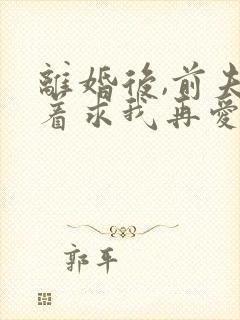 離婚後,前夫
着求我再愛
郭平